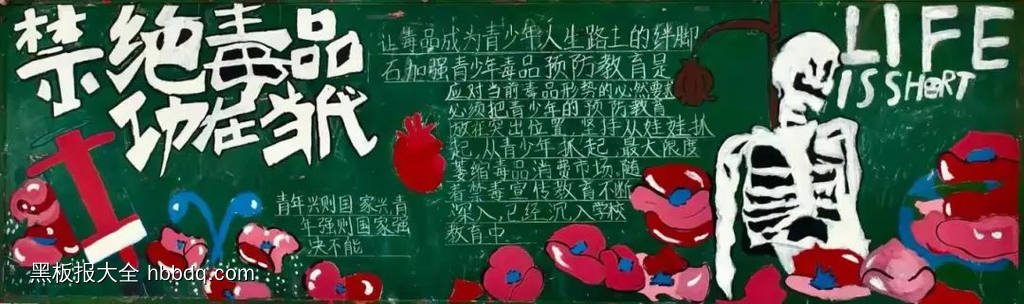 禁绝毒品
功在当代
让毒品成为青少年人生路上的绊脚
石加强青少年毒品预防教育是
应对当前毒品形势的必然要
必须把青少年的预防教育
放在突出位置,坚持从娃娃抓
起,从青少年抓起,最大限度
萎缩毒品消费市场,随
着禁毒宣传教育不断
深入,已经沉入学校
教育中
青年兴则国家兴,青
年强则国家强
决不能
LIFE
IS SHORT
黑板报大全 hbbdq.com